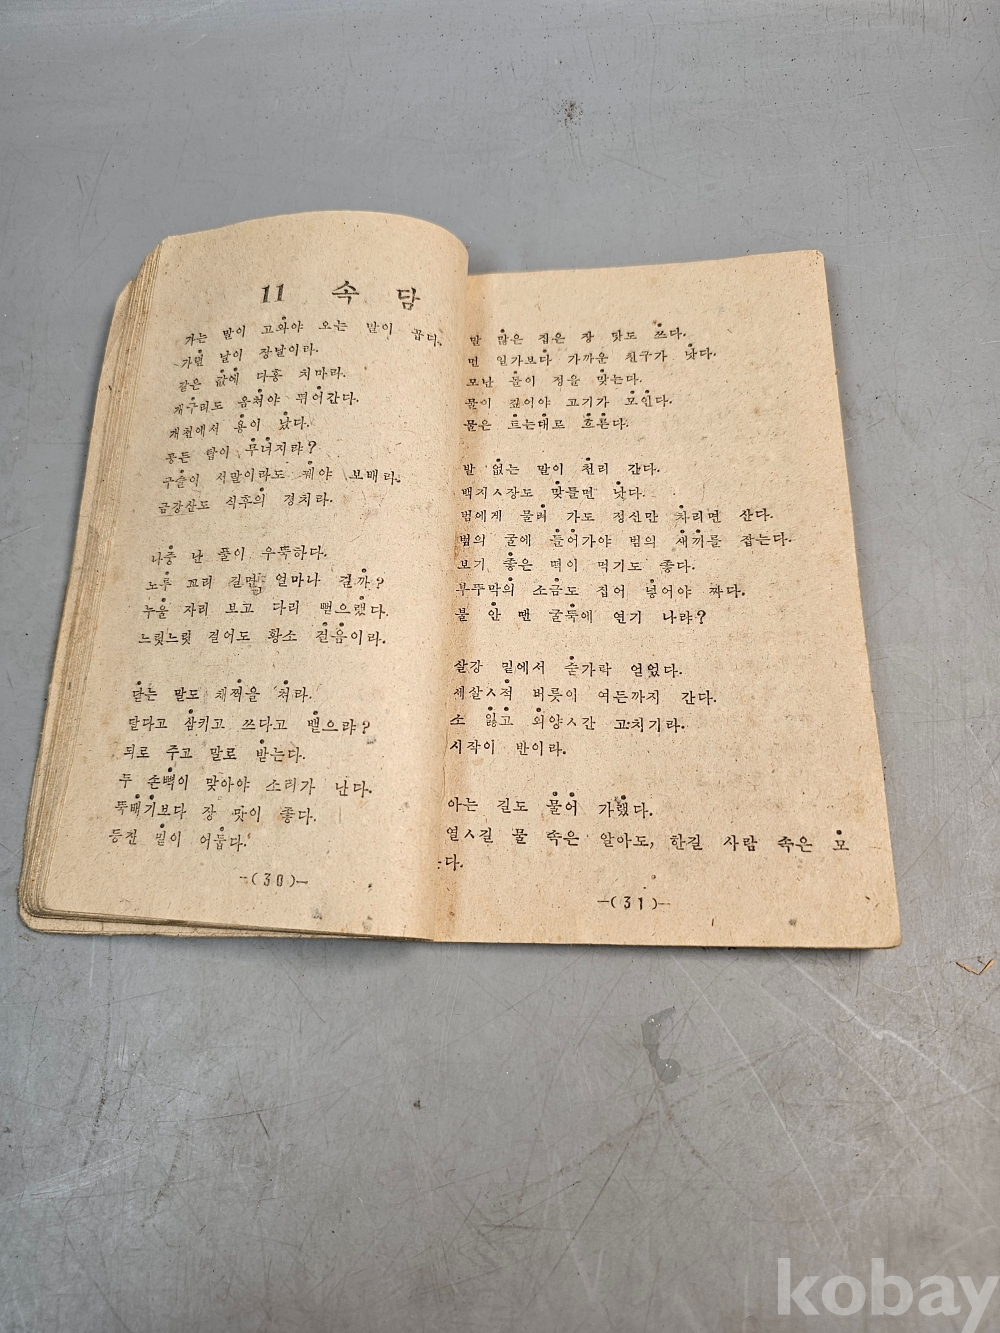 11 속 담
가는 말이 고와야 오는 말이 곱다.
가던 날이 장날이라.
같은 값에 다홍 치마라.
개구리도 움쳐야 뛰어간다.
개천에서 용이 났다.
공든 탑이 무너지랴?
구슬이 서말이라도 꿰야 보배라.
금강산도 식후의 경치라.
나중 난 풀이 우뚝하다.
노루 꼬리 길면 얼마나 길까?
누울 자리 보고 다리 뻗으랬다.
느릿느릿 걸어도 황소 걸음이라.
닫는 말도 채찍을 쳐라.
달다고 삼키고 쓰다고 뱉으랴?
되로 주고 말로 받는다.
두 손뼉이 맞아야 소리가 난다.
뚝배기보다 장 맛이 좋다.
등잔 밑이 어둡다.
-(30)-
말 많은 집은 장 맛도 쓰다.
먼 일가보다 가까운 친구가 낫다.
모난 돌이 정을 맞는다.
물이 깊어야 고기가 모인다.
물은 트는대로 흐른다.
발 없는 말이 천리 간다.
백지ㅅ장도 맞들면 낫다.
범에게 물려 가도 정신만 차리면 산다.
범의 굴에 들어가야 범의 새끼를 잡는다.
보기 좋은 떡이 먹기도 좋다.
부뚜막의 소금도 집어 넣어야 짜다.
불 안 땐 굴뚝에 연기 나랴?
살강 밑에서 숟가락 얻었다.
세살ㅅ적 버릇이 여든까지 간다.
소 잃고 외양ㅅ간 고치기라.
시작이 반이라.
아는 길도 물어 가랬다.
열ㅅ길 물 속은 알아도, 한길 사람 속은 모
다.
-(31)-
kobay